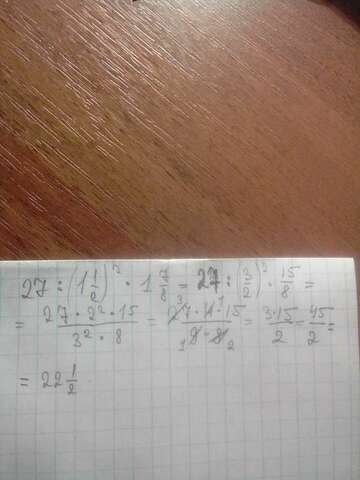 27 : (1 1/2)² · 1 7/8 = 27 : (3/2)² · 15/8 =
= 27 · 2² · 15 / 3² · 8 = 27 · 4 · 15 / 9 · 8 = 3·15/2 = 45/2 =
= 22 1/2